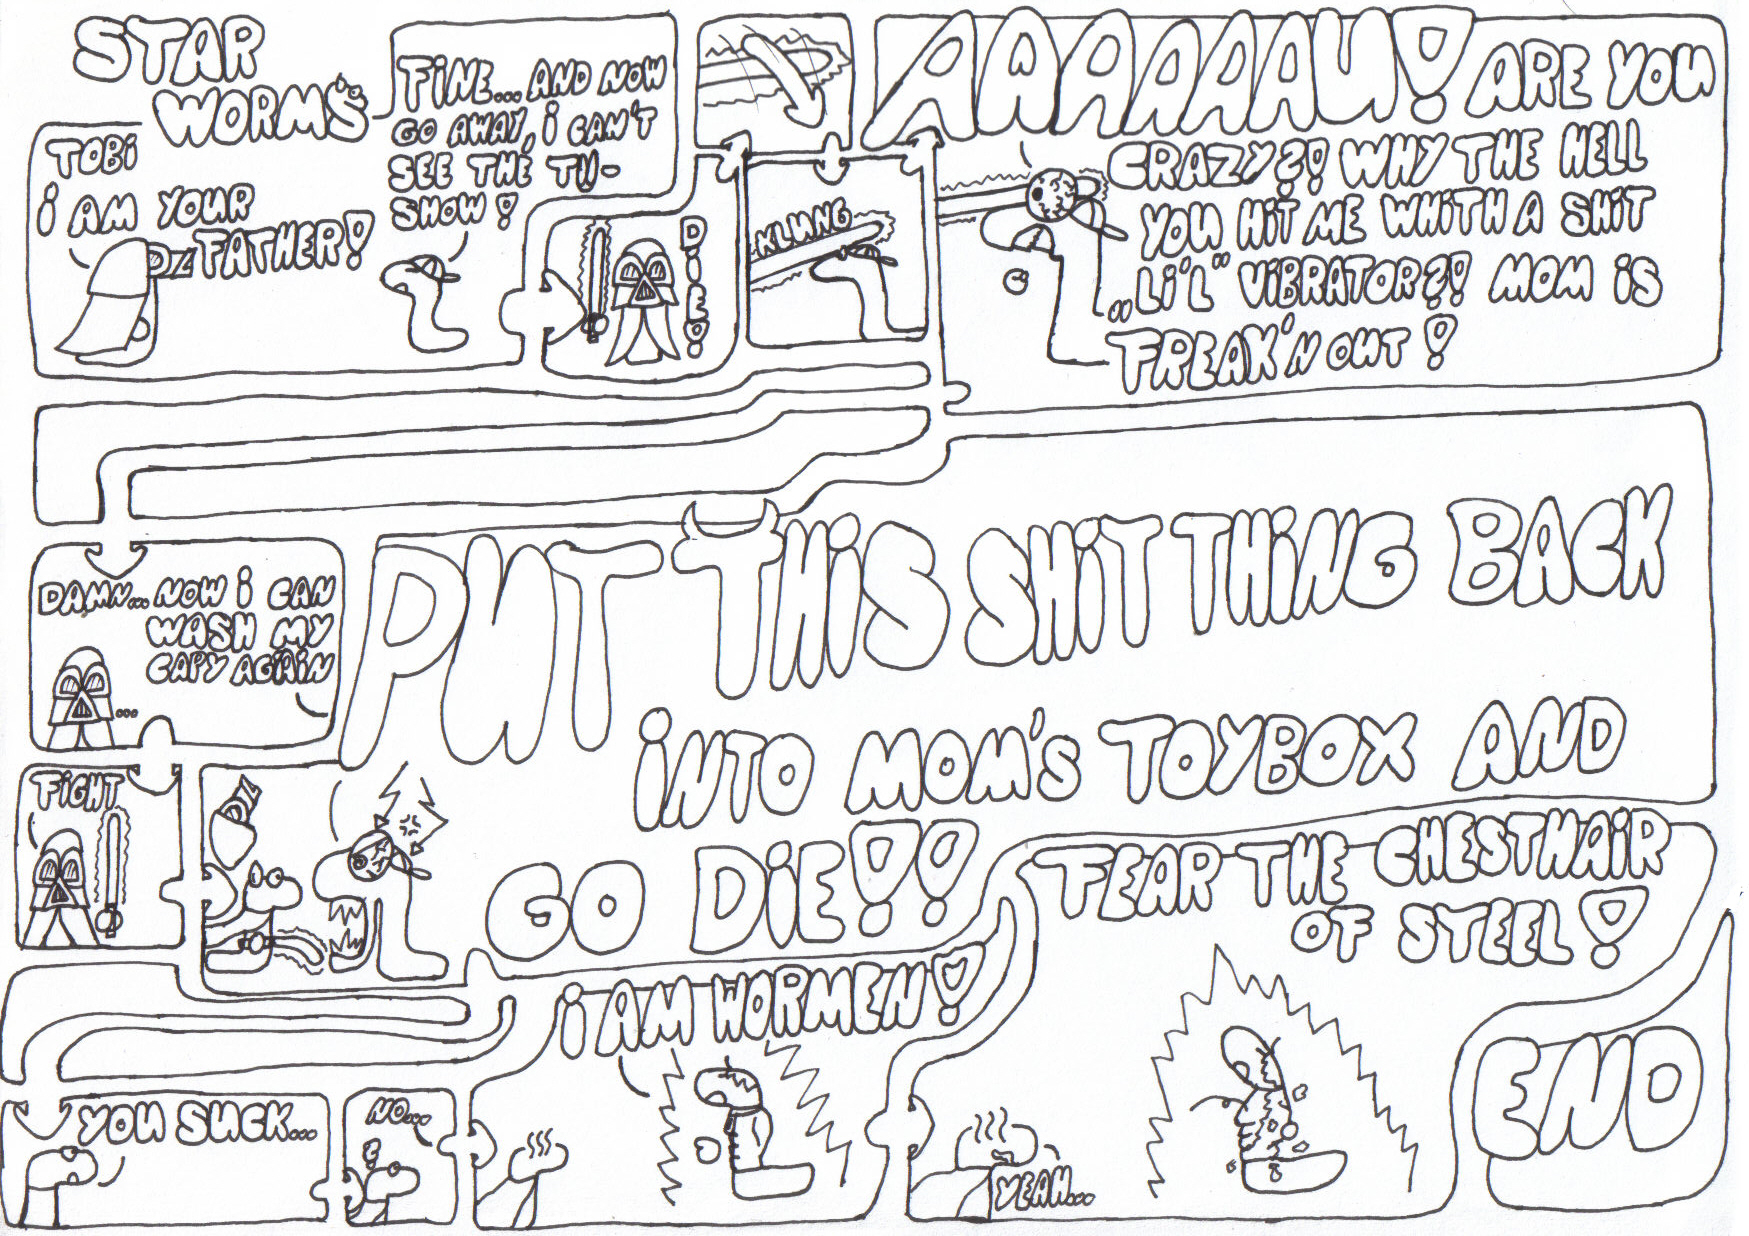 STAR
WORMS
TOBi
i AM YOUR
FATHER!
FiNE... AND NOW
GO AWAY, i CAN'T
SEE THE TU-
SHOW!
DIE!
KLUNG
AAAAAAAU! ARE YOU
CRAZY?! WHY THE HELL
YOU HiT ME WHiTH A SHiT
„Li'L" ViBRATOR?! MOM iS
FREAK'N OUT!
DAMN... NOW i CAN
WASH MY
CAPY AGAiN
...
PUT THiS SHiT THiNG BACK
iNTO MOM'S TOYBOX AND
GO DiE!!
FiGHT
YOU SUCK...
NO...
i AM WORMEN!
FEAR THE CHESTHAiR
OF STEEL!
YEAH...
END